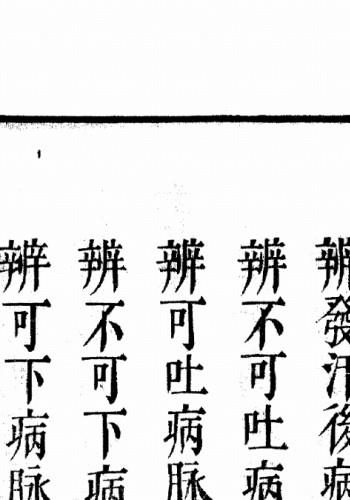 辨發汗後病
辨不可吐病
辨可吐病脉
辨不可下病
辨可下病脉